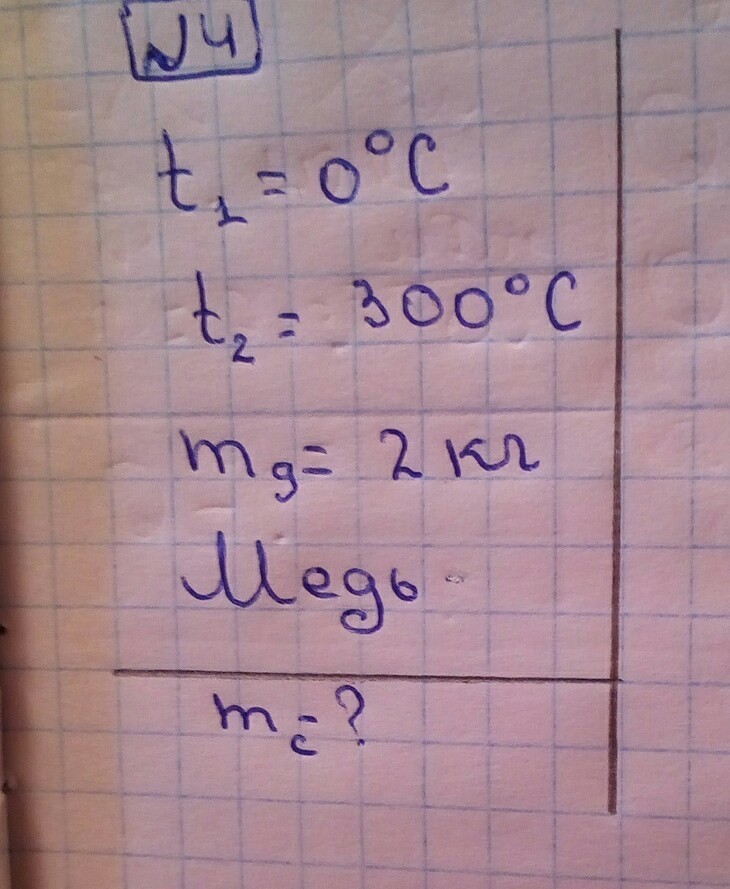 №4
t₁ = 0°C
t₂ = 300°C
m₉ = 2 кг
Медь -
m꜀ = ?